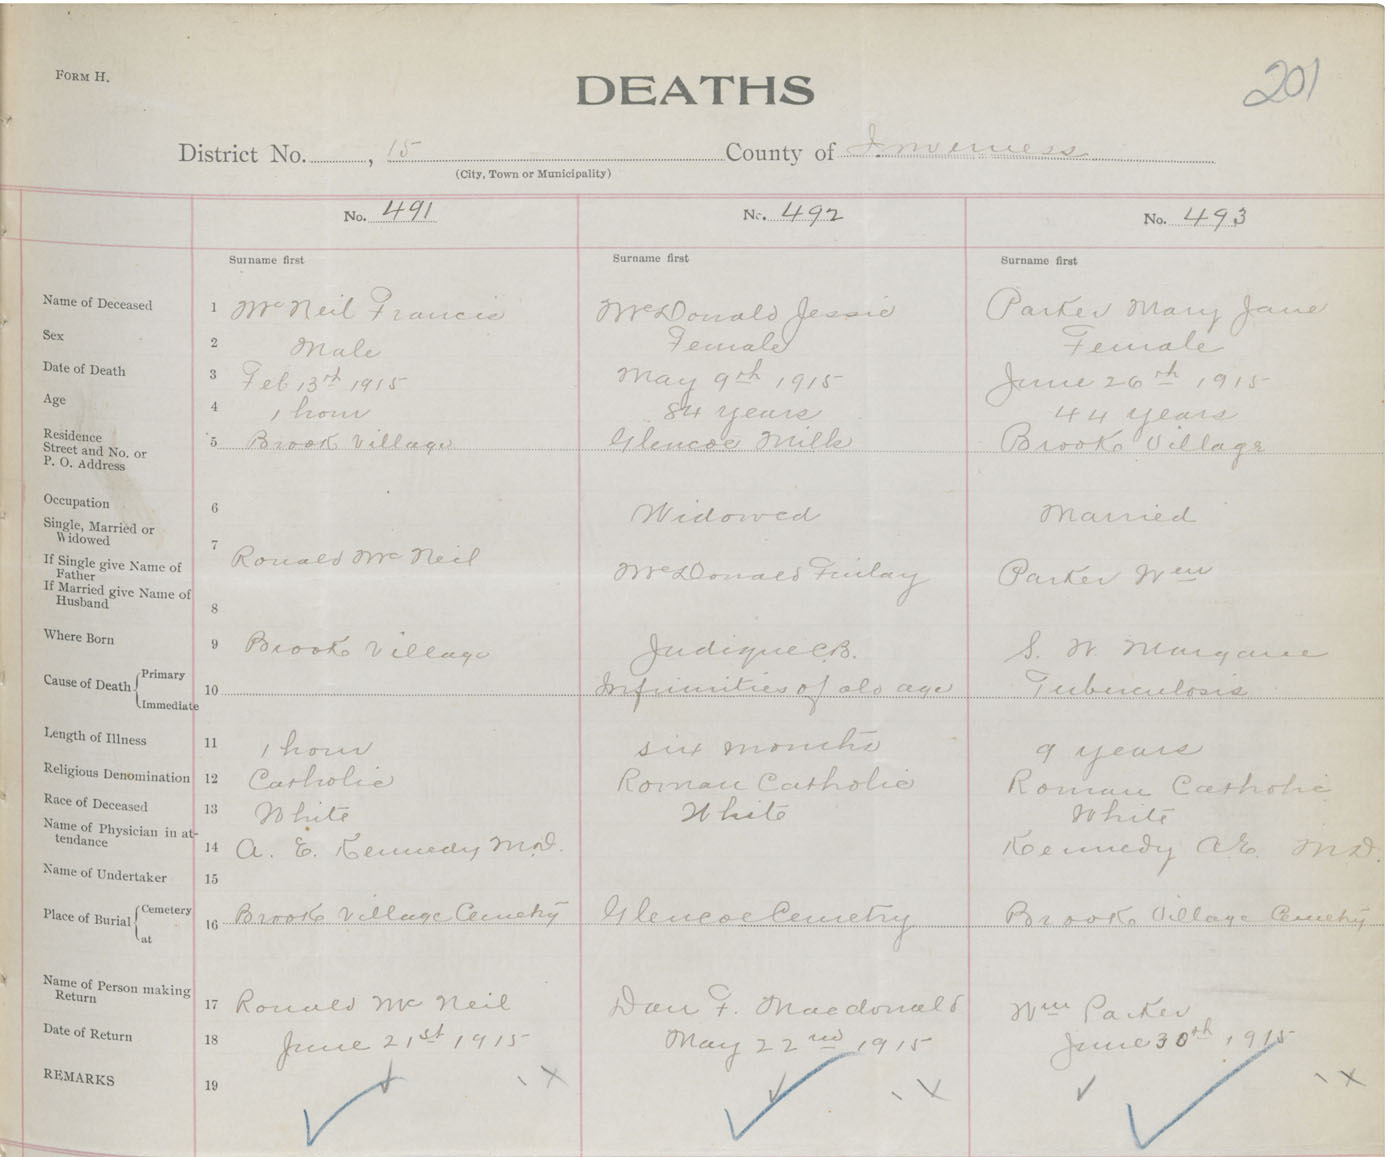 FORM H.
DEATHS
201
District No. , 15 County of Inverness
(City, Town or Municipality)
No. 491 No. 492 No. 493
Surname first Surname first Surname first
Name of Deceased 1 McNeil Francis McDonald Jessie Parker Mary Jane
Sex 2 Male Female Female
Date of Death 3 Feb 13th 1915 May 9th 1915 June 26th 1915
Age 4 1 hour 84 years 44 years
Residence
Street and No. or
P. O. Address
5 Brook Village Glencoe Mills Brook Village
Occupation 6 Widowed Married
Single, Married or
Widowed
7
If Single give Name of
Father
Ronald McNeil McDonald Finlay Parker Wm
If Married give Name of
Husband
8
Where Born 9 Brook Village Judique C.B. S. W. Margaree
Cause of Death Primary
Immediate
10 Infirmities of old age Tuberculosis
Length of Illness 11 1 hour six months 9 years
Religious Denomination 12 Catholic Roman Catholic Roman Catholic
Race of Deceased 13 White White White
Name of Physician in at-
tendance
14 A. E. Kennedy M.D. Kennedy A.E. M.D.
Name of Undertaker 15
Place of Burial Cemetery
at
16 Brook Village Cemetry Glencoe Cemetry Brook Village Cemetry
Name of Person making
Return
17 Ronald McNeil Dan F. Macdonald Wm Parker
Date of Return 18 June 21st 1915 May 22nd 1915 June 30th 1915
REMARKS 19